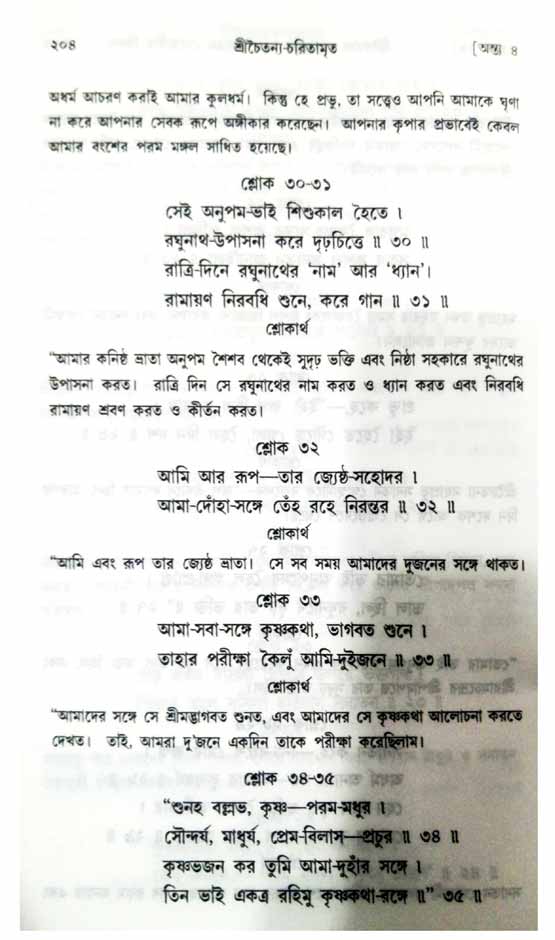 ২০৪ শ্রীচৈতন্য-চরিতামৃত [অন্ত্য ৪
অধর্ম আচরণ করাই আমার কুলধর্ম। কিন্তু হে প্রভু, তা সত্ত্বেও আপনি আমাকে ঘৃণা
না করে আপনার সেবক রূপে অঙ্গীকার করেছেন। আপনার কৃপার প্রভাবেই কেবল
আমার বংশের পরম মঙ্গল সাধিত হয়েছে।
শ্লোক ৩০-৩১
সেই অনুপম-ভাই শিশুকাল হৈতে ।
রঘুনাথ-উপাসনা করে দৃঢ়চিত্তে ॥ ৩০ ॥
রাত্রি-দিনে রঘুনাথের ‘নাম’ আর ‘ধ্যান’।
রামায়ণ নিরবধি শুনে, করে গান ॥ ৩১ ॥
শ্লোকার্থ
“আমার কনিষ্ঠ ভ্রাতা অনুপম শৈশব থেকেই সুদৃঢ় ভক্তি এবং নিষ্ঠা সহকারে রঘুনাথের
উপাসনা করত। রাত্রি দিন সে রঘুনাথের নাম করত ও ধ্যান করত এবং নিরবধি
রামায়ণ শ্রবণ করত ও কীর্তন করত।
শ্লোক ৩২
আমি আর রূপ—তার জ্যেষ্ঠ-সহোদর ।
আমা-দোঁহা-সঙ্গে তেঁহ রহে নিরন্তর ॥ ৩২ ॥
শ্লোকার্থ
“আমি এবং রূপ তার জ্যেষ্ঠ ভ্রাতা। সে সব সময় আমাদের দুজনের সঙ্গে থাকত।
শ্লোক ৩৩
আমা-সবা-সঙ্গে কৃষ্ণকথা, ভাগবত শুনে ।
তাহার পরীক্ষা কৈলুঁ আমি-দুইজনে ॥ ৩৩ ॥
শ্লোকার্থ
“আমাদের সঙ্গে সে শ্রীমদ্ভাগবত শুনত, এবং আমাদের সে কৃষ্ণকথা আলোচনা করতে
দেখত। তাই, আমরা দু’জনে একদিন তাকে পরীক্ষা করেছিলাম।
শ্লোক ৩৪-৩৫
“শুনহ বল্লভ, কৃষ্ণ—পরম-মধুর ।
সৌন্দর্য, মাধুর্য, প্রেম-বিলাস—প্রচুর ॥ ৩৪ ॥
কৃষ্ণভজন কর তুমি আমা-দুহাঁর সঙ্গে ।
তিন ভাই একত্র রহিমু কৃষ্ণকথা-রঙ্গে ॥” ৩৫ ॥